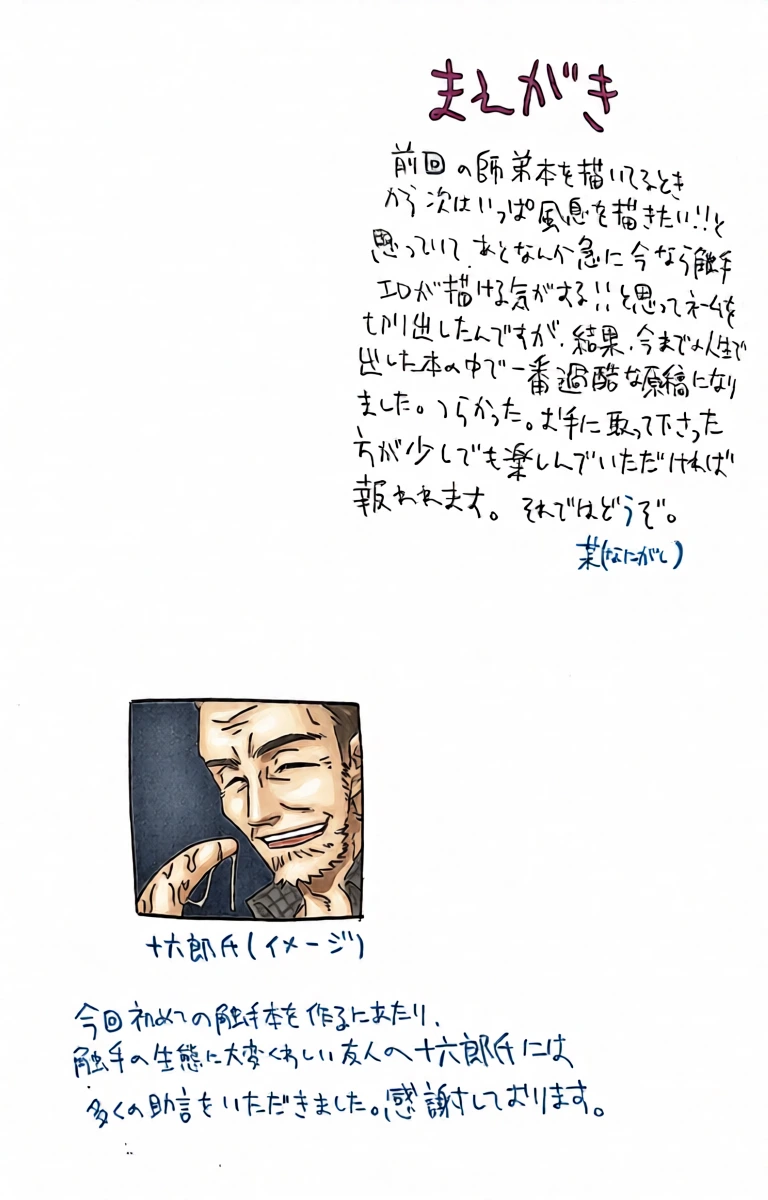 まえがき
前回の師弟本を描いてるとき
から次はいっぱ風息を描きたい!!と
思っていて、あとなんか急に今なら触手
エロが描ける気がする!!と思ってネームを
切り出したんですが、結果、今までの人生で
出した本の中で一番過酷な原稿になり
ました。つらかった。お手に取って下さった
方が少しでも楽しんでいただければ
報われます。それではどうぞ。
(なにがし)
十六郎氏(イメージ)
今回初めての触手本を作るにあたり、
触手の生態に大変くわしい友人の十六郎氏には
多くの助言をいただきました。感謝しております。